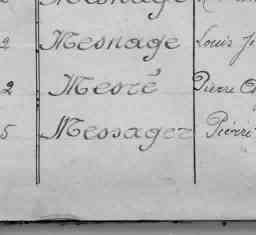 Mesnage
2 Mesnage Louis J
2 Mesré Pierre
5 Messager Pierre